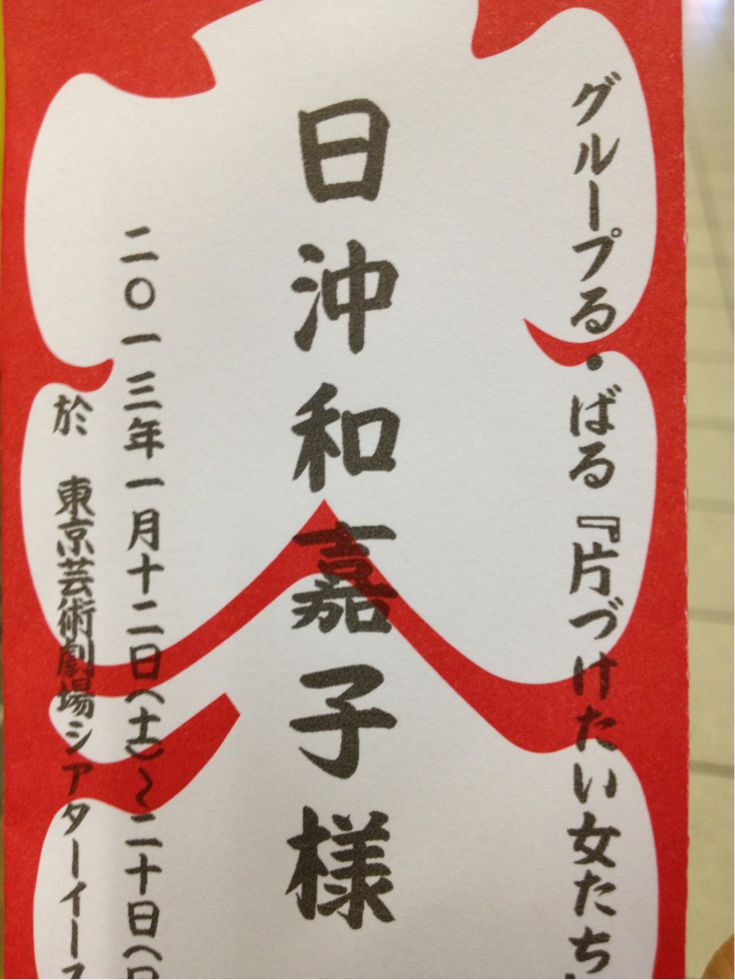 グループる・ばる『片づけたい女たち
日沖和嘉子様
二〇一三年一月十二日(土)～二十日(日
於　東京芸術劇場シアターイース